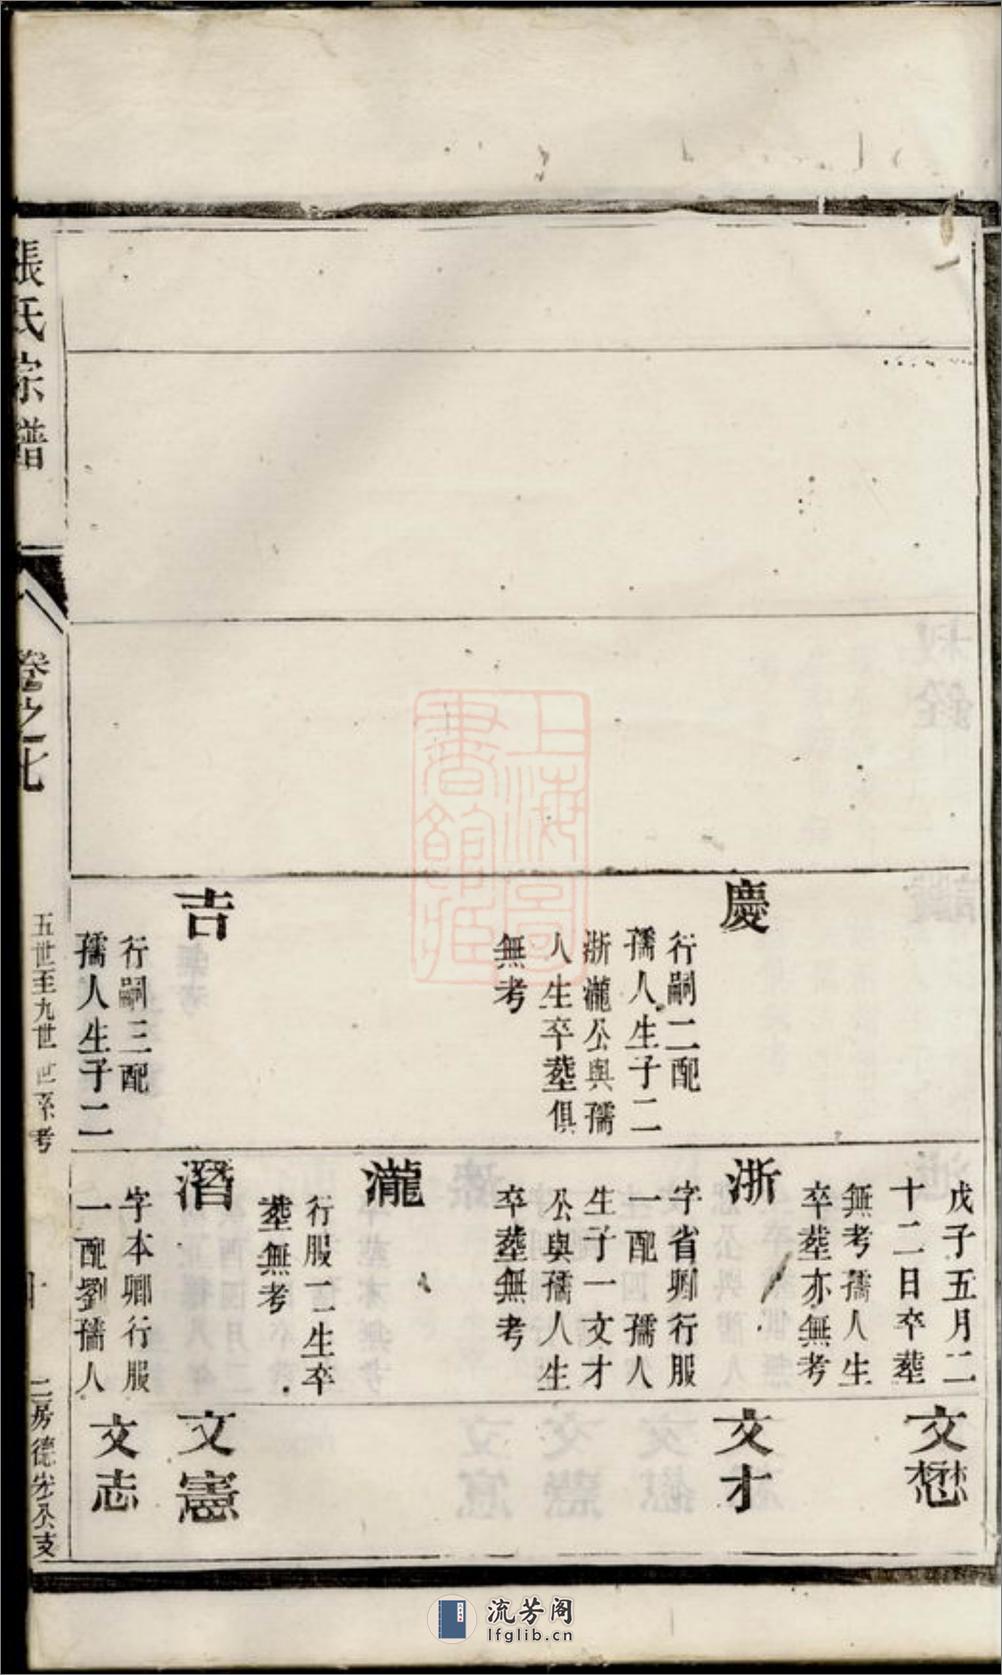 慶
行嗣二配
孺人生子二
浙瀧公與孺
人生卒塟俱
無考
吉
行嗣三配
孺人生子二
戊子五月二
十二日卒塟
無考孺人生
卒塟亦無考
浙
字省卿行服
一配 孺人
生子一文才
公與孺人生
卒塟無考
瀧
行服一生卒
塟無考
潛
字本卿行服
一配劉孺人
文懋
文才
文憲
文志
張氏宗譜
卷之七
五世至九世世系考
十
二房德宏公支
上海圖
書館藏
流芳阁
lfglib.cn